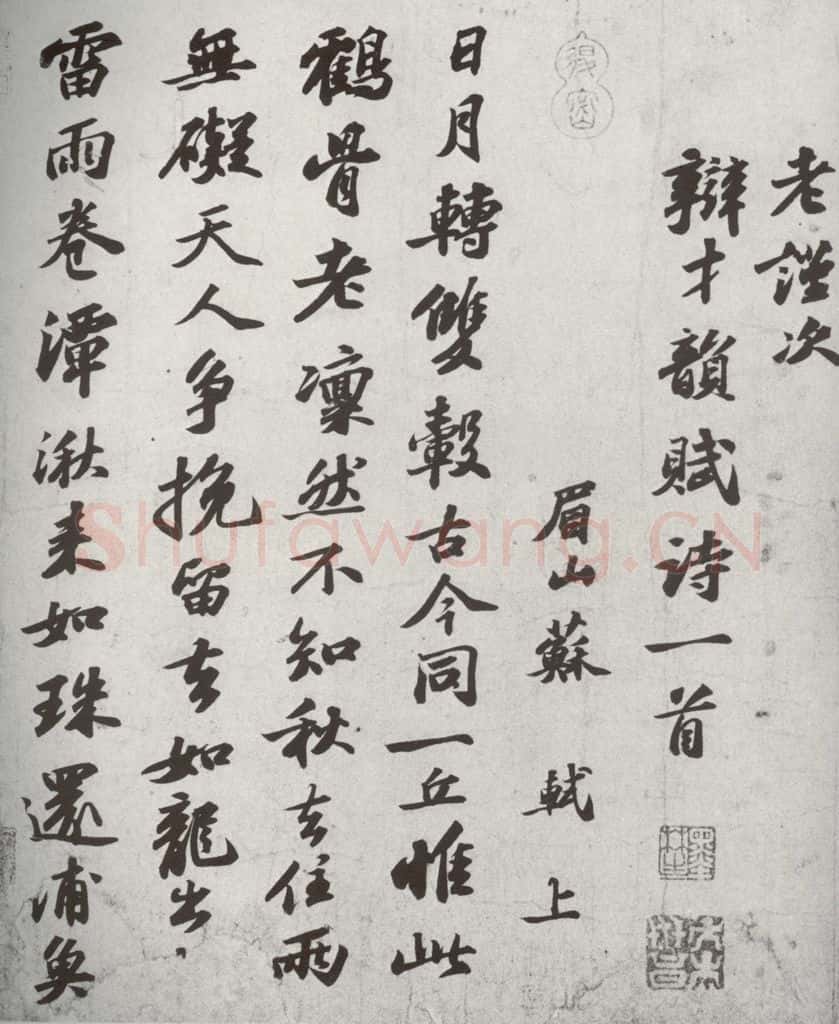 老謹次
辯才韻賦詩一首
眉山蘇軾上
日月轉雙轂古今同一丘惟此
鶴骨老凜然不知秋去住兩
無礙天人爭挽留去如龍出
雷雨卷潭湫来如珠還浦魚
Shufawang.CN